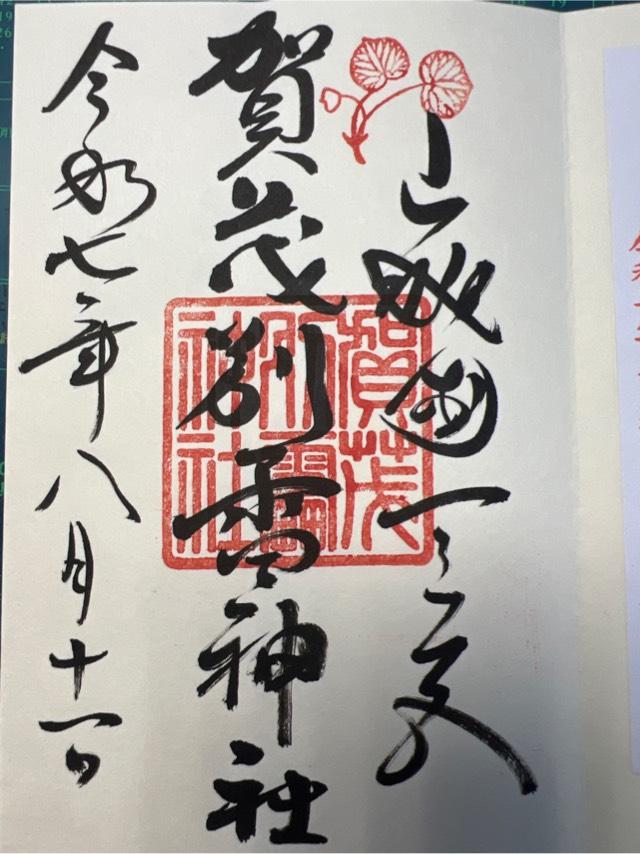 山城國一之宮
賀茂別雷神社
令和七年八月十一日
賀茂
別雷
神社